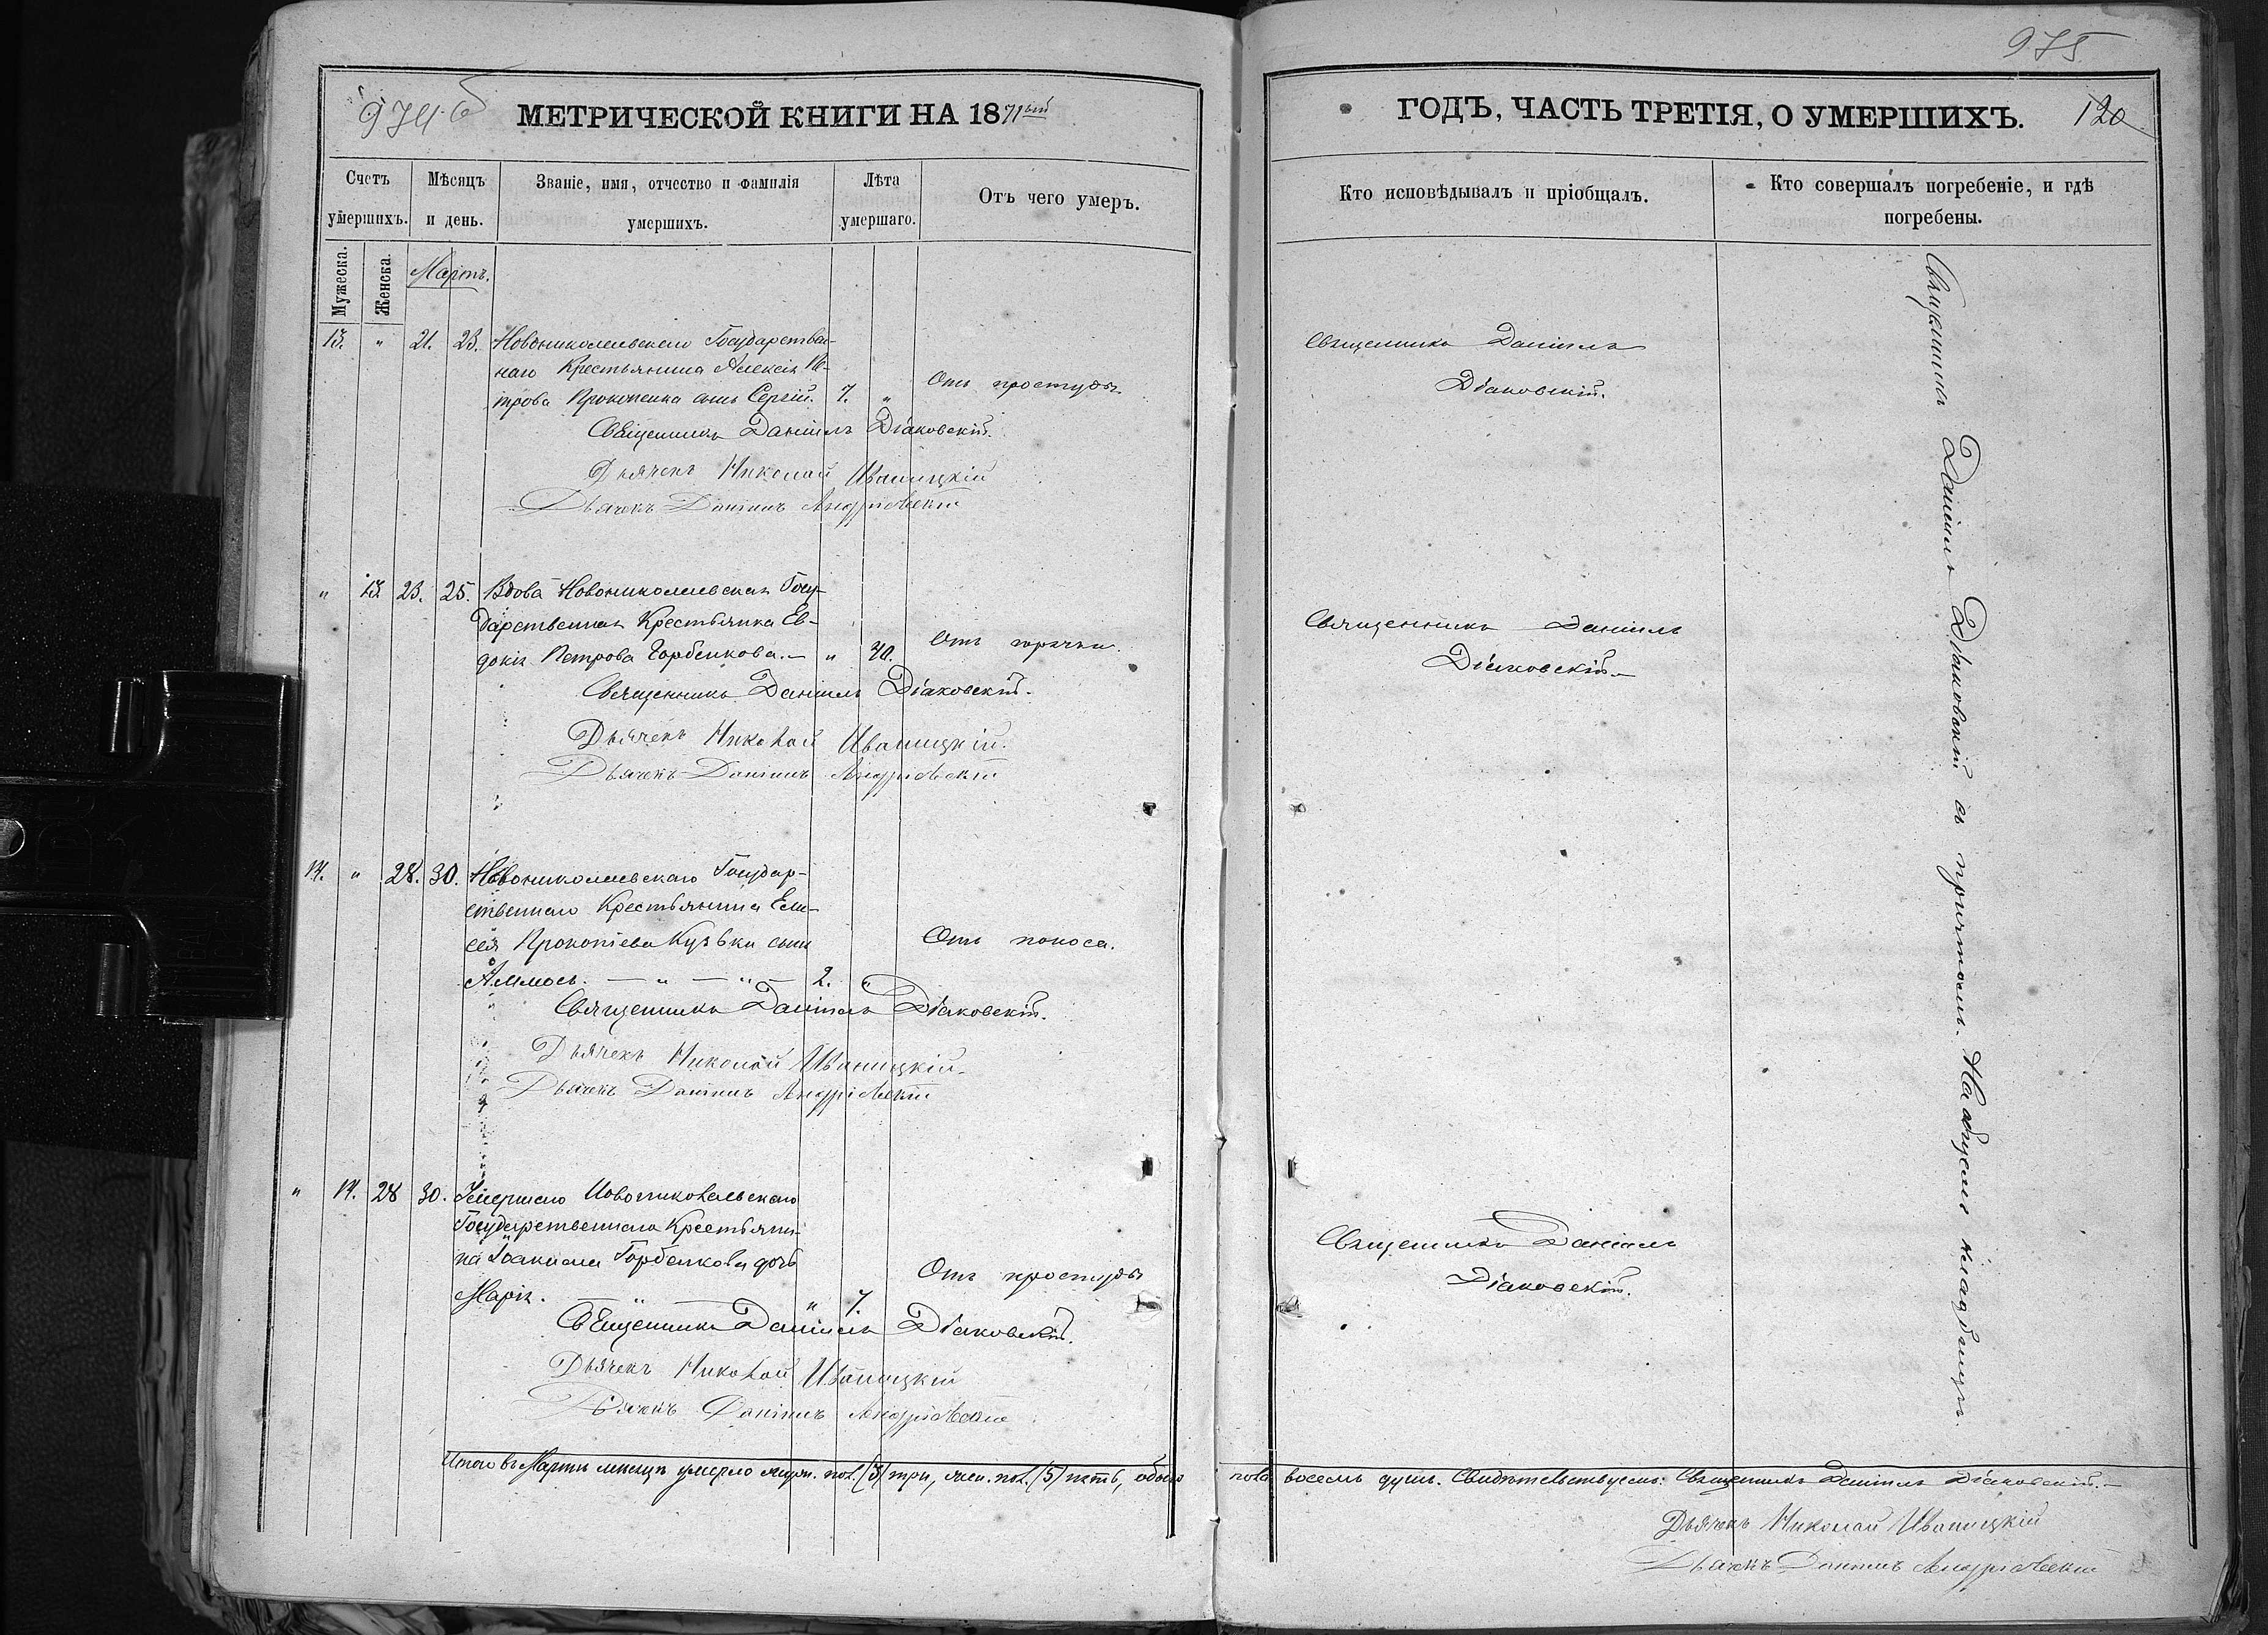 974 об
МЕТРИЧЕСКОЙ КНИГИ НА 1871ый
Счетъ умершихъ.
Мѣсяцъ и день.
Званіе, имя, отчество и фамилія умершихъ.
Лѣта умершаго.
Отъ чего умеръ.
Мужеска.
Женска.
Мартъ.
13. " 21. 23. Новониколаевскаго Государствен-
наго Крестьянина Алексія Пе-
трова Прокопенка сынъ Сергій. 7. " Отъ простуды.
Священникъ Даніилъ Діаковскій.
Дьячекъ Николай Иваницкій
Дьячекъ Даніилъ Андріевскій
" 13. 23. 25. Вдова Новониколаевская Госу-
дарственная Крестьянка Ев-
докія Петрова Горбенкова. — " 40. Отъ горячки.
Священникъ Даніилъ Діаковскій.
Дьячекъ Николай Иваницкій.
Дьячекъ Даніилъ Андріевскій
14. " 28. 30. Новониколаевскаго Государ-
ственнаго Крестьянина Ели-
сея Прокопіева Кузьки сынъ Отъ поноса.
Аммосъ. — " — " — 2. "
Священникъ Даніилъ Діаковскій.
Дьячекъ Николай Иваницкій.
Дьячекъ Даніилъ Андріевскій
" 14. 28 30. Умершаго Новониколаевскаго
Государственнаго Крестьяни-
на Іоакима Горбенкова дочь Отъ простуды
Марія. — " — " 7.
Священникъ Даніилъ Діаковскій.
Дьячекъ Николай Иваницкій
Дьячекъ Даніилъ Андріевскій
Итого въ Мартѣ месяцѣ умерло муж. пол. (3) три, жен. пол. (5) пять, обоего
975
ГОДЪ, ЧАСТЬ ТРЕТІЯ, О УМЕРШИХЪ.
120
Кто исповѣдывалъ и пріобщалъ.
Кто совершалъ погребеніе, и гдѣ погребены.
Священникъ Даніилъ
Діаковскій.
Священникъ Даніилъ
Діаковскій.—
Священникъ Даніилъ
Діаковскій.
Священникъ Даніилъ Діаковскій съ причтомъ. На общемъ кладбищѣ.
пола восемь душъ. Свидѣтельствуемъ: Священникъ Даніилъ Діаковскій.—
Дьячекъ Николай Иваницкій
Дьячекъ Даніилъ Андріевскій